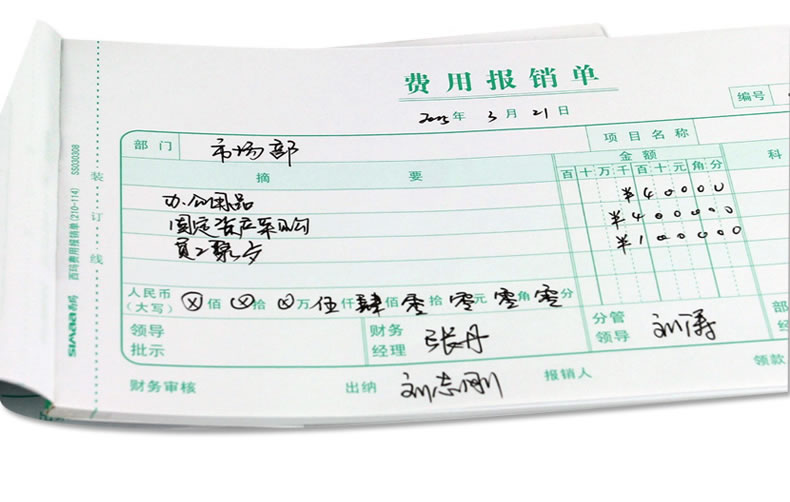 费用报销单
编号
2005年 3月 21日
部门 市场部 项目名称
摘要 金额 科
百十万千百十元角分
办公用品 ¥40000
固定资产采购 ¥400000
员工聚会 ¥100000
人民币(大写) ⊗佰 ⊗拾 ⊗万 伍仟 肆佰 零拾 零元 零角 零分
领导批示 财务经理 张丹 分管领导 刘涛 部
财务审核 出纳 刘志刚 报销人 领款
装订线
SIMAA西玛 西玛费用报销单(210-114) SS030308